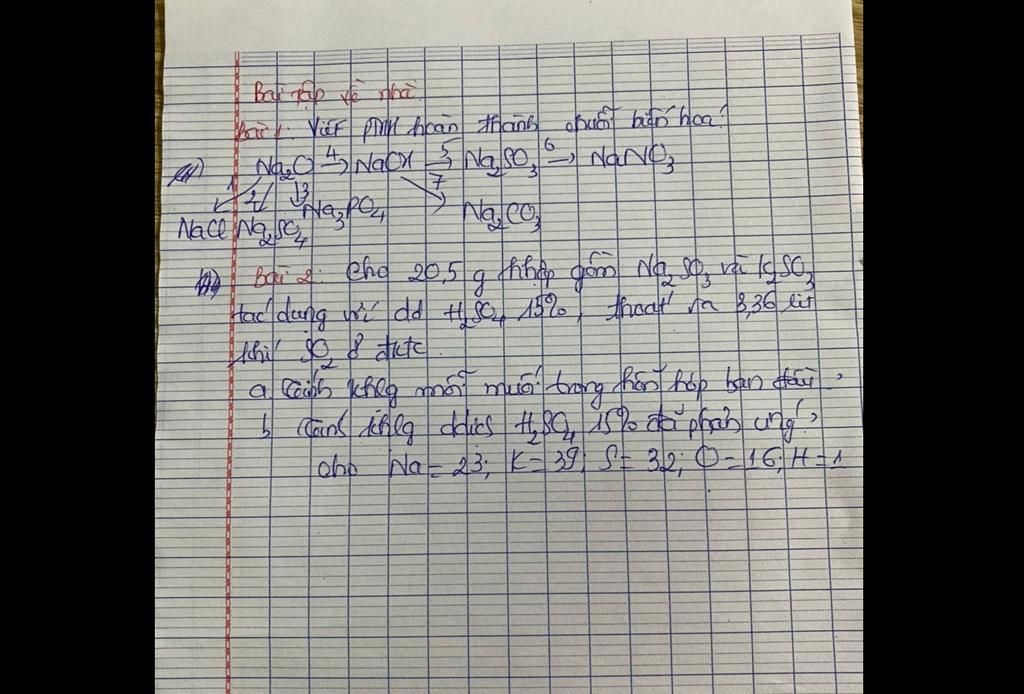 Bài tập về nhà.
Bài 1: Viết PTHH hoàn thành chuỗi biến hoá:
Na₂O →⁴ NaOH →⁵ Na₂SO₃ →⁶ NaNO₃
1 2 3 7
Na₃PO₄ Na₂CO₃
NaCl Na₂SO₄
Bài 2: Cho 20,5 g hhợp gồm Na₂SO₃ và K₂SO₃
tác dụng với dd H₂SO₄ 15%, thoát ra 3,36 lít
khí SO₂ ở đktc.
a. Tính khlg mỗi muối trong hỗn hợp ban đầu?
b Tính khlg H₂SO₄ 15% đã phản ứng?
cho Na = 23; K = 39; S = 32; O = 16; H = 1